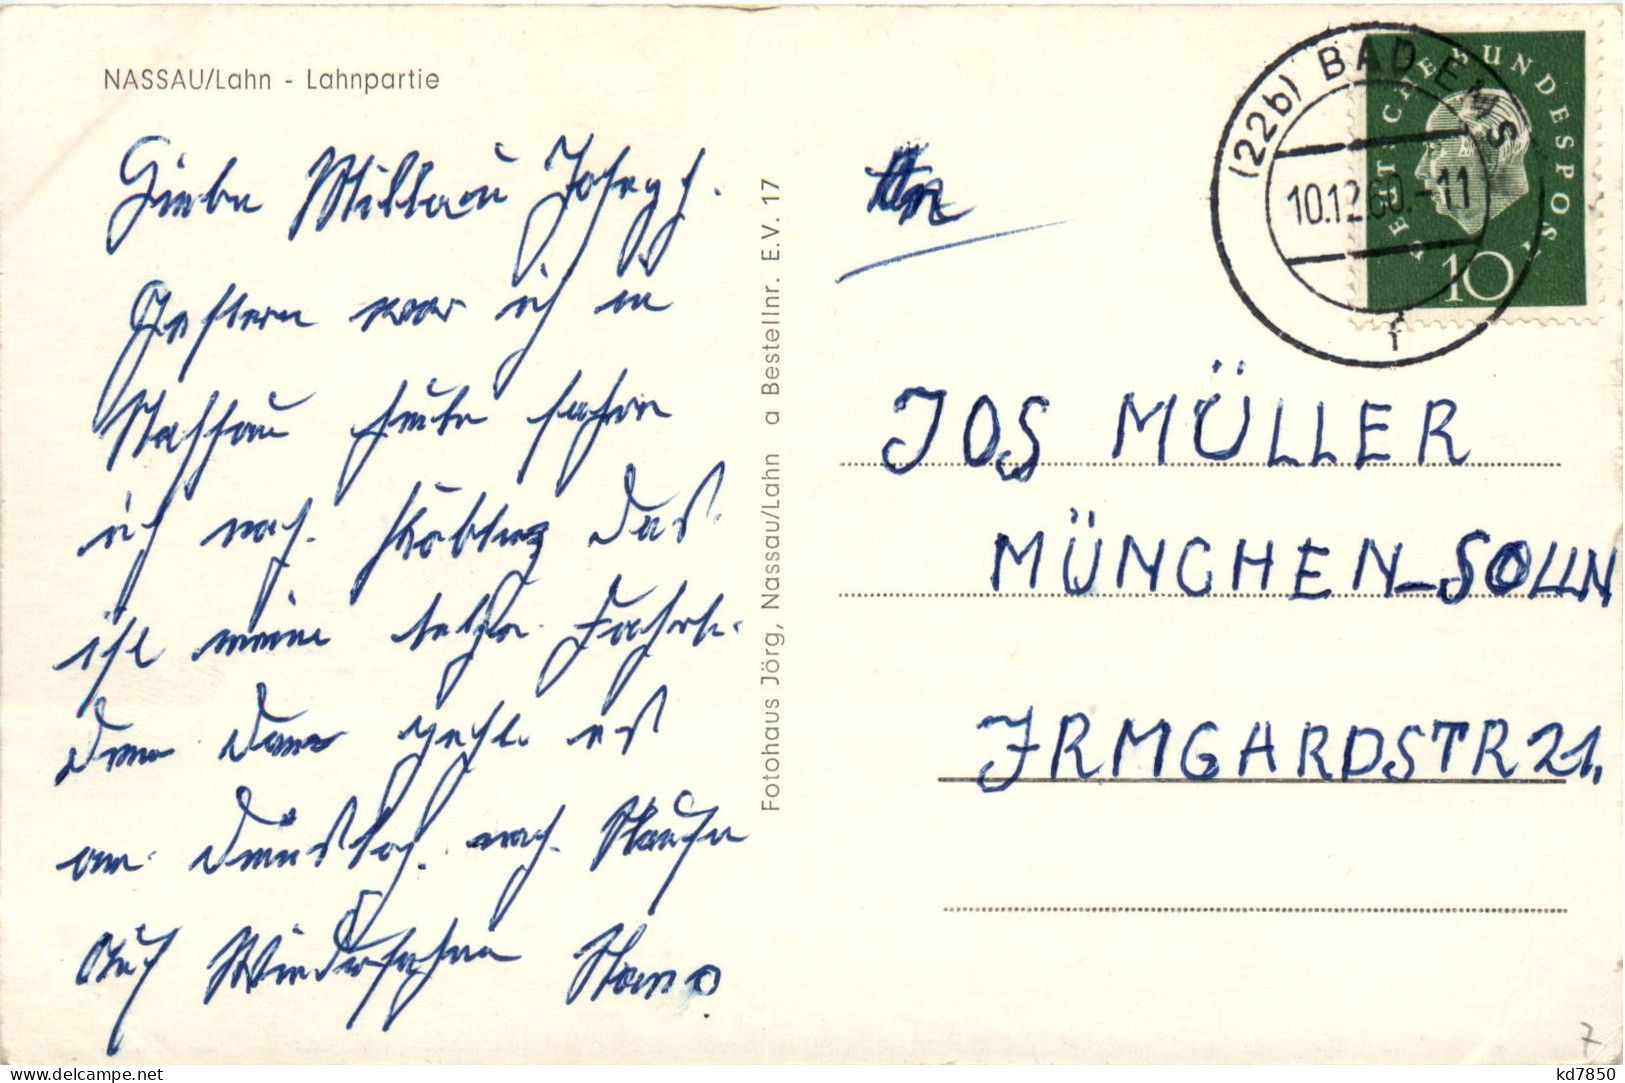 NASSAU/Lahn - Lahnpartie
Liebe Josef.
Gestern war ich in
Nassau heute fahre
ich nach. Koblenz das.
ist meine letzte. Fahrt.
denn dann geht es
am. Dienstag. nach. Hause
Auf Wiedersehen Hans
Fotohaus Jörg, Nassau/Lahn a Bestellnr. E.V. 17
An
(22b) BAD EMS
10.12.60.-11
f
DEUTSCHE BUNDESPOST
10
JOS MÜLLER
MÜNCHEN-SOLLN
IRMGARDSTR 21.
7
kd7850
www.delcampe.net